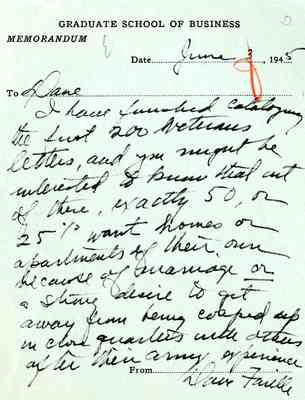 GRADUATE SCHOOL OF BUSINESS
MEMORANDUM
Date June 3, 1945
To Dane
I have finished cataloging
the first 200 veterans
letters, and you might be
interested to know that out
of these, exactly 50, or
25% want homes or
apartments of their own
because of marriage or
a strong desire to get
away from being cooped up
in close quarters with others
after their army experience
From Dave